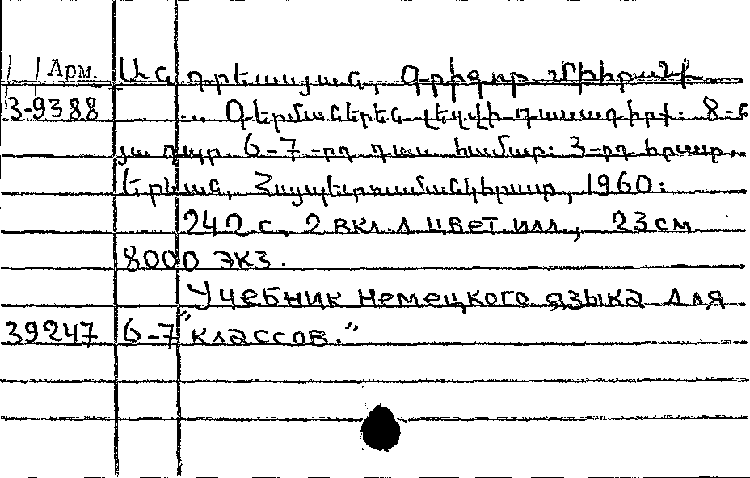 Арм. Անդրեասյան, Գրիգոր Միհրանի
3-9388 ... Գերմաներեն լեզվի դասագիրք. 8-ա
յա դպր. 6-7-րդ դաս. համար: 3-րդ հրատ.
Երևան, Հայպետուսմանկհրատ, 1960:
242 с, 2 вкл. л цвет. илл., 23 см
8000 экз.
"Учебник немецкого языка для
39247 6-7 классов."